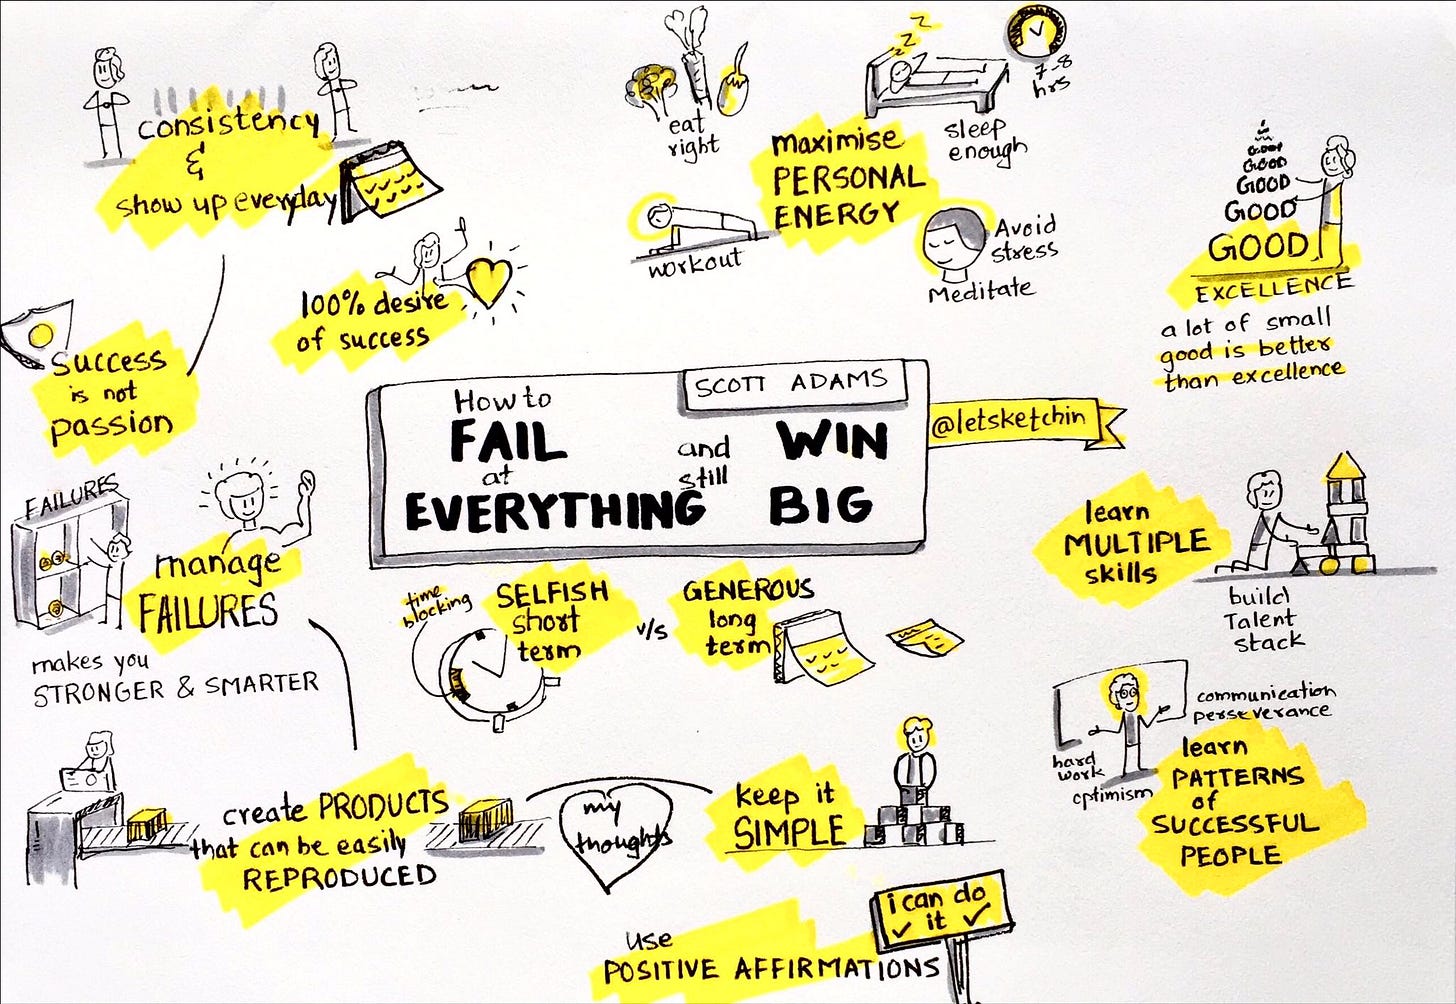 consistency
&
show up everyday
100% desire
of success
Success
is not
passion
eat
right
maximise
PERSONAL
ENERGY
workout
z z z
sleep
enough
7-8
hrs
Avoid
stress
Meditate
GOOD
GOOD
GOOD
GOOD
GOOD
EXCELLENCE
a lot of small
good is better
than excellence
SCOTT ADAMS
How to
FAIL
at
EVERYTHING
and
still
WIN
BIG
@letsketchin
FAILURES
manage
FAILURES
makes you
STRONGER & SMARTER
time
blocking
SELFISH
short
term
v/s
GENEROUS
long
term
learn
MULTIPLE
skills
build
Talent
stack
communication
perseverance
hard
work
optimism
learn
PATTERNS
of
SUCCESSFUL
PEOPLE
create PRODUCTS
that can be easily
REPRODUCED
my
thoughts
keep it
SIMPLE
i can do
it
use
POSITIVE AFFIRMATIONS